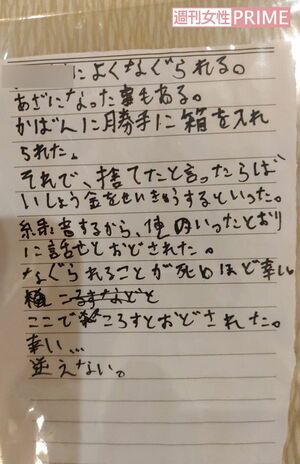 週刊女性PRIME
によくなぐられる。
あざになった事もある。
かばんに勝手に箱を入れ
られた。
それで、捨てたと言ったらば
いしょう金をせいきゅうするといった。
録音するから、俺のいったとおり
に話せとおどされた。
なぐられることが死ぬほど辛い。
ころすなどと
ここでころすとおどされた。
辛い…
逆えない。